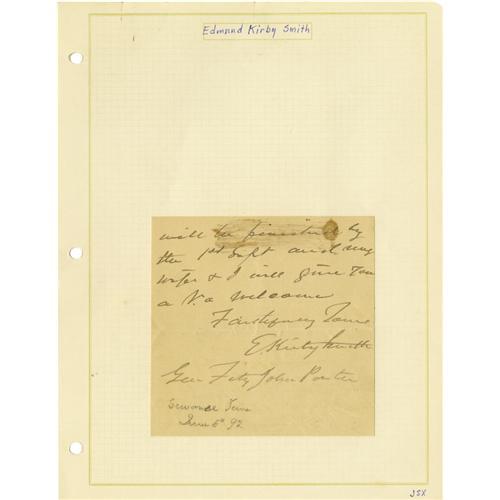 Edmund Kirby Smith
will be finished by
the 1st Sept and my
wife & I will give You
a Va Welcome
Faithfully Yours
E. Kirby Smith
Gen Fitz John Porter
Sewanee Tenn
June 6th 92
JSX